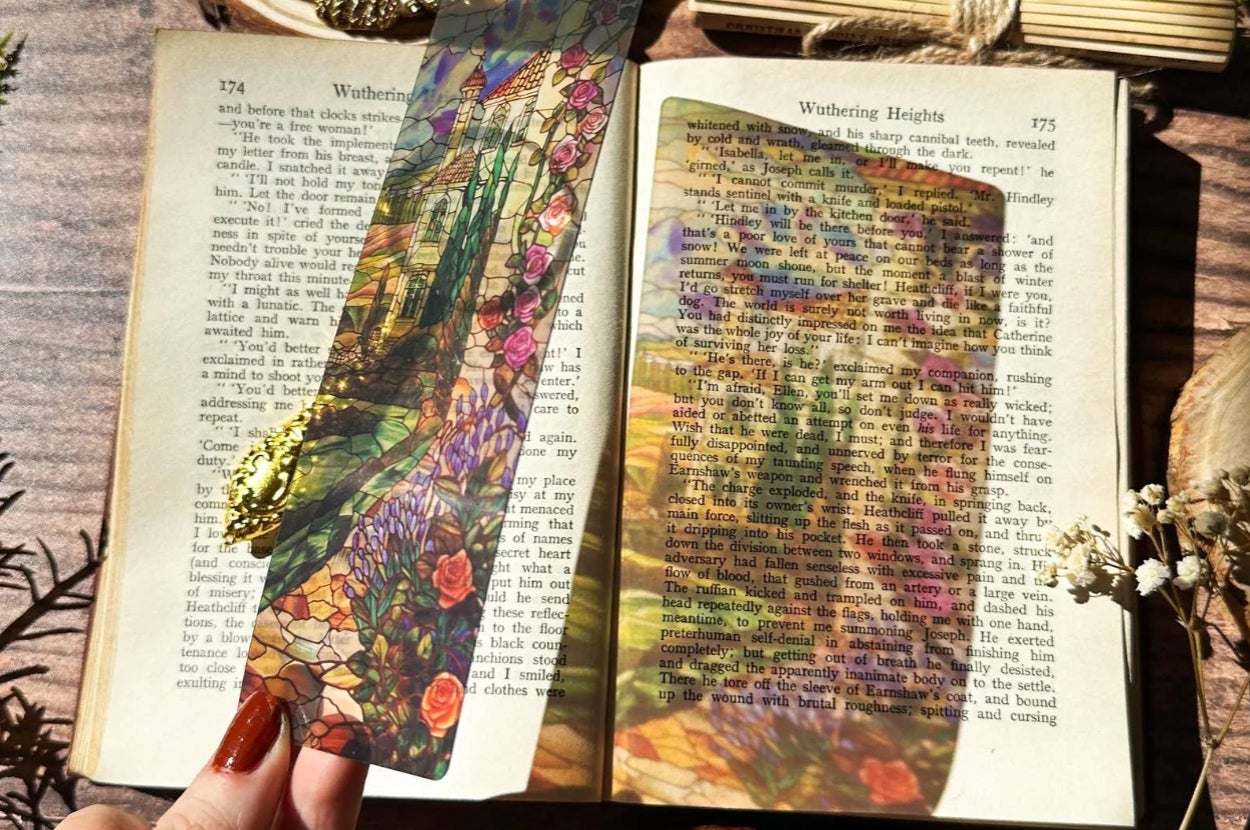 CHRISTMAS
174
Wuthering
and before that clocks strikes
—you're a free woman!'
"'He took the implement
my letter from his breast, a
candle. I snatched it away
"'I'll not hold my ton
him. Let the door remain
"'No! I've formed
execute it!' cried the de
ness in spite of yourse
needn't trouble your he
Nobody alive would re
my throat this minute
"I might as well hi
with a lunatic. The
lattice and warn h
awaited him.
"'You'd better
exclaimed in rathe
a mind to shoot yo
"'You'd better
addressing me
repeat.
"'I shal
'Come
duty.'
by th
comm
him.
I lov
for the base
(and conscie
blessing it w
of misery;
Heathcliff t
tions, the
by a blow
tenance lo
too close
exulting i
cut
ned
to a
which
nt!' I
aw has
enter.'
swered,
care to
d again.
done my
my place
sy at my
at menaced
rming that
s of names
secret heart
ght what a
put him out
uld he send
these reflec-
n to the floor
s black coun-
anchions stood
and I smiled,
d clothes were
Wuthering Heights
175
whitened with snow, and his sharp cannibal teeth, revealed
by cold and wrath, gleamed through the dark.
"'Isabella, let me in, or I'll make you repent!' he
'girned,' as Joseph calls it.
"'I cannot commit murder,' I replied. 'Mr. Hindley
stands sentinel with a knife and loaded pistol.'
"'Let me in by the kitchen door,' he said.
"'Hindley will be there before you,' I answered: 'and
that's a poor love of yours that cannot bear a shower of
snow! We were left at peace on our beds as long as the
summer moon shone, but the moment a blast of winter
returns, you must run for shelter! Heathcliff, if I were you,
I'd go stretch myself over her grave and die like a faithful
dog. The world is surely not worth living in now, is it?
You had distinctly impressed on me the idea that Catherine
was the whole joy of your life: I can't imagine how you think
of surviving her loss.'
"'He's there, is he?' exclaimed my companion, rushing
to the gap. 'If I can get my arm out I can hit him!'
"I'm afraid, Ellen, you'll set me down as really wicked;
but you don't know all, so don't judge. I wouldn't have
aided or abetted an attempt on even his life for anything.
Wish that he were dead, I must; and therefore I was fear-
fully disappointed, and unnerved by terror for the conse-
quences of my taunting speech, when he flung himself on
Earnshaw's weapon and wrenched it from his grasp.
"The charge exploded, and the knife, in springing back,
closed into its owner's wrist. Heathcliff pulled it away by
main force, slitting up the flesh as it passed on, and thru
it dripping into his pocket. He then took a stone, struck
down the division between two windows, and sprang in. Hi
adversary had fallen senseless with excessive pain and
flow of blood, that gushed from an artery or a large vein.
The ruffian kicked and trampled on him, and dashed his
head repeatedly against the flags, holding me with one hand,
meantime, to prevent me summoning Joseph. He exerted
preterhuman self-denial in abstaining from finishing him
completely; but getting out of breath he finally desisted,
and dragged the apparently inanimate body on to the settle.
There he tore off the sleeve of Earnshaw's coat, and bound
up the wound with brutal roughness; spitting and cursing